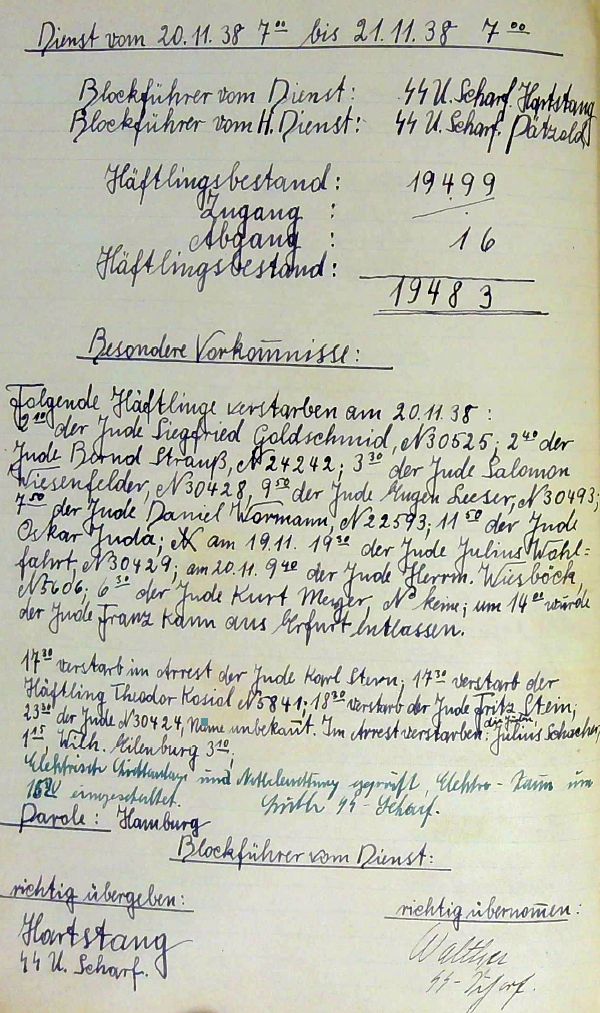 Dienst vom 20.11.38 7⁰⁰ bis 21.11.38 7⁰⁰
Blockführer vom Dienst: SS U. Scharf. Hartstang
Blockführer vom H. Dienst: SS U. Scharf. Pätzold
Häftlingsbestand: 19499
Zugang :
Abgang : 16
Häftlingsbestand:
19483
Besondere Vorkom̅nisse:
Folgende Häftlinge verstarben am 20.11.38 :
2¹⁰ der Jude Siegfried Goldschmid, N30525; 2⁴⁰ der
Jude Bernd Strauß, N24242; 3³⁰ der Jude Salomon
Wiesenfelder, N30428, 9⁵⁰ der Jude Eugen Leeser, N30493;
7⁵⁰ der Jude Daniel Wormann, N22593; 11⁵⁰ der Jude
Oskar Juda; am 19.11. 19³⁰ der Jude Julius Wohl=
fahrt, N30429; am 20.11. 9⁴⁰ der Jude Herrm. Wiesböck,
N7606; 6³⁰ der Jude Kurt Meyer, N° keine; um 14⁰⁰ wurde
der Jude Franz Kann aus Erfurt entlassen.
17³⁰ verstarb im Arrest der Jude Karl Stern; 17³⁰ verstarb der
Häftling Theodor Kosiol N5841; 18³⁰ verstarb der Jude Fritz Stein;
23³⁰ der Jude N30424, Name unbekan̅t. Im Arrest verstarben: die Juden, Julius Schacher,
1¹⁵, Wilh. Eilenburg 3¹⁰;
Elektrische und Notbeleuchtung geprüft, Elektro-Zaun um
eingeschaltet. SS-Scharf.
Parole: Hamburg
Blockführer vom Dienst:
richtig übergeben:
richtig übernom̅en:
Hartstang
SS U. Scharf.
Walther
SS-Scharf.